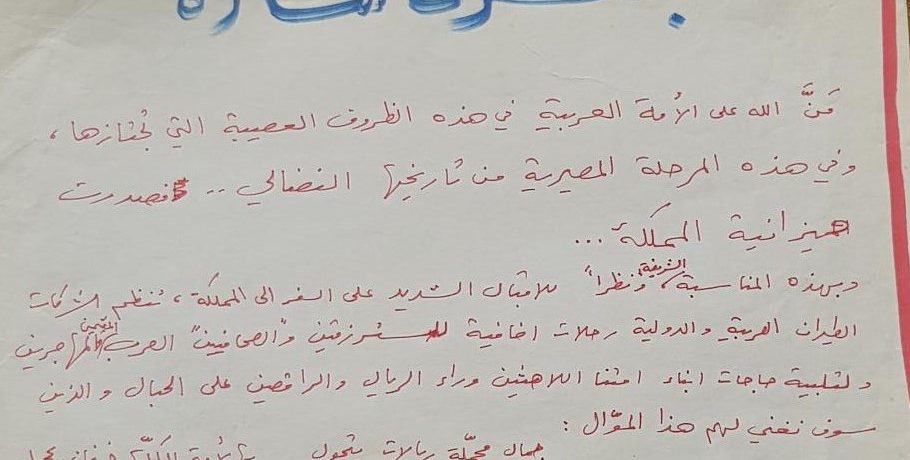 مَنَّ الله على الأمة العربية في هذه الظروف العصيبة التي تجتازها ،
وفي هذه المرحلة المصيرية من تاريخها النضالي .. فصدرت
ميزانية المملكة ...
وبهذه المناسبة الشريفة، ونظراً للاقبال الشديد على السفر الى المملكة ، تنظم شركات
الطيران العربية والدولية رحلات اضافية للمسترزقين و"الصحافيين" العرب المقيمين والمهاجرين
ولتلبية حاجات ابناء امتنا اللاهثين وراء الريال والراقصين على الحبال والذين
سوف نغني لهم هذا الموّال :
جمال محمّلة ريالات